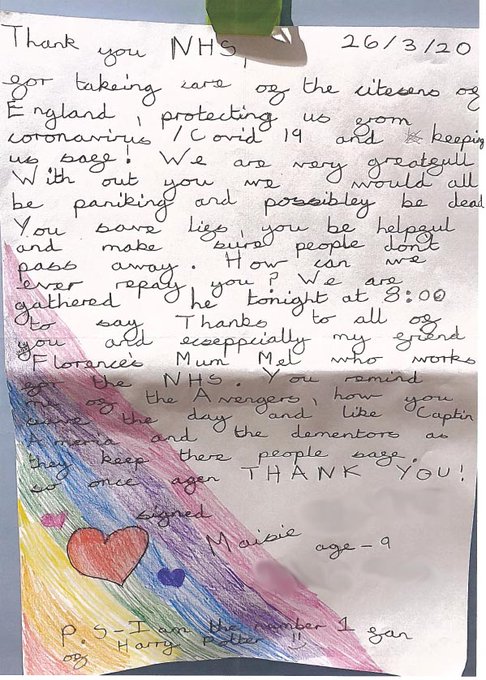 Thank you NHS, 26/3/20
for takeing care of the citesens of
England, protecting us from
coronavirus /Covid 19 and keeping
us safe! We are very greatfull
With out you we would all
be paniking and possibley be dead
You save lies, you be helpful
and make sure people don't
pass away. How can we
ever repay you? We are
gathered he tonight at 8:00
to say Thanks to all of
you and eseppcially my friend
Florence's Mum Mel who works
for the NHS. You remind
me of the Avengers, how you
save the day and like Captin
Ameria and the dementors as
they keep there people safe.
so once agen THANK YOU!
signed
Maisie age - 9
P.S - I am the number 1 fan
of Harry Potter